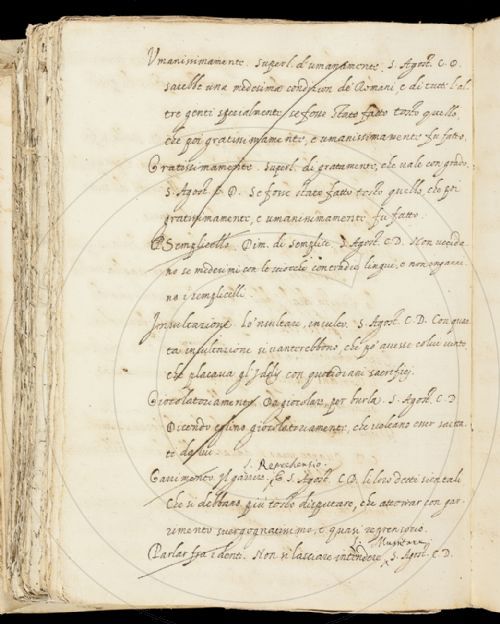 Umanissimamente. Superl. d'umanamente. S. Agost. C. D.
sarebbe una medesima condizion de' Romani, e di tutte l'al
tre genti spezialmente se fosse stato fatto tosto quello,
che poi gratissimamente, e umanissimamente fu fatto.
Gratissimamente. Superl. di gratamente, che vale con grado.
S. Agost. C. D. Se fosse stato fatto tosto quello, che poi
gratissimamente, e umanissimamente fu fatto.
Semplicello. Dim. di Semplice. S. Agost. C. D. Non uccida
no se medesimi con le lingue, e non inganni
no i semplicelli.
Insultazione. Lo 'nsultare, S. Agost. C. D. Con qua
ta insultazione si vanterebbono, che po' avesse colui vinto
che placava gl'Idoli con quotidiani sacrifici.
Giocolatoriamente. Da giocolare, per burla. S. Agost. C. D.
Dicendo eglino giocolatoriamente, che voleano esser saetta
ti da lui.
Il S. Agost. C. D. li loro detti
che si debbano più tosto dispettare, che attornar con gar
rimento svergognatissimo, e quasi
Parlar fra i denti. Non si lasciare intendere. S. Agost. C. D.